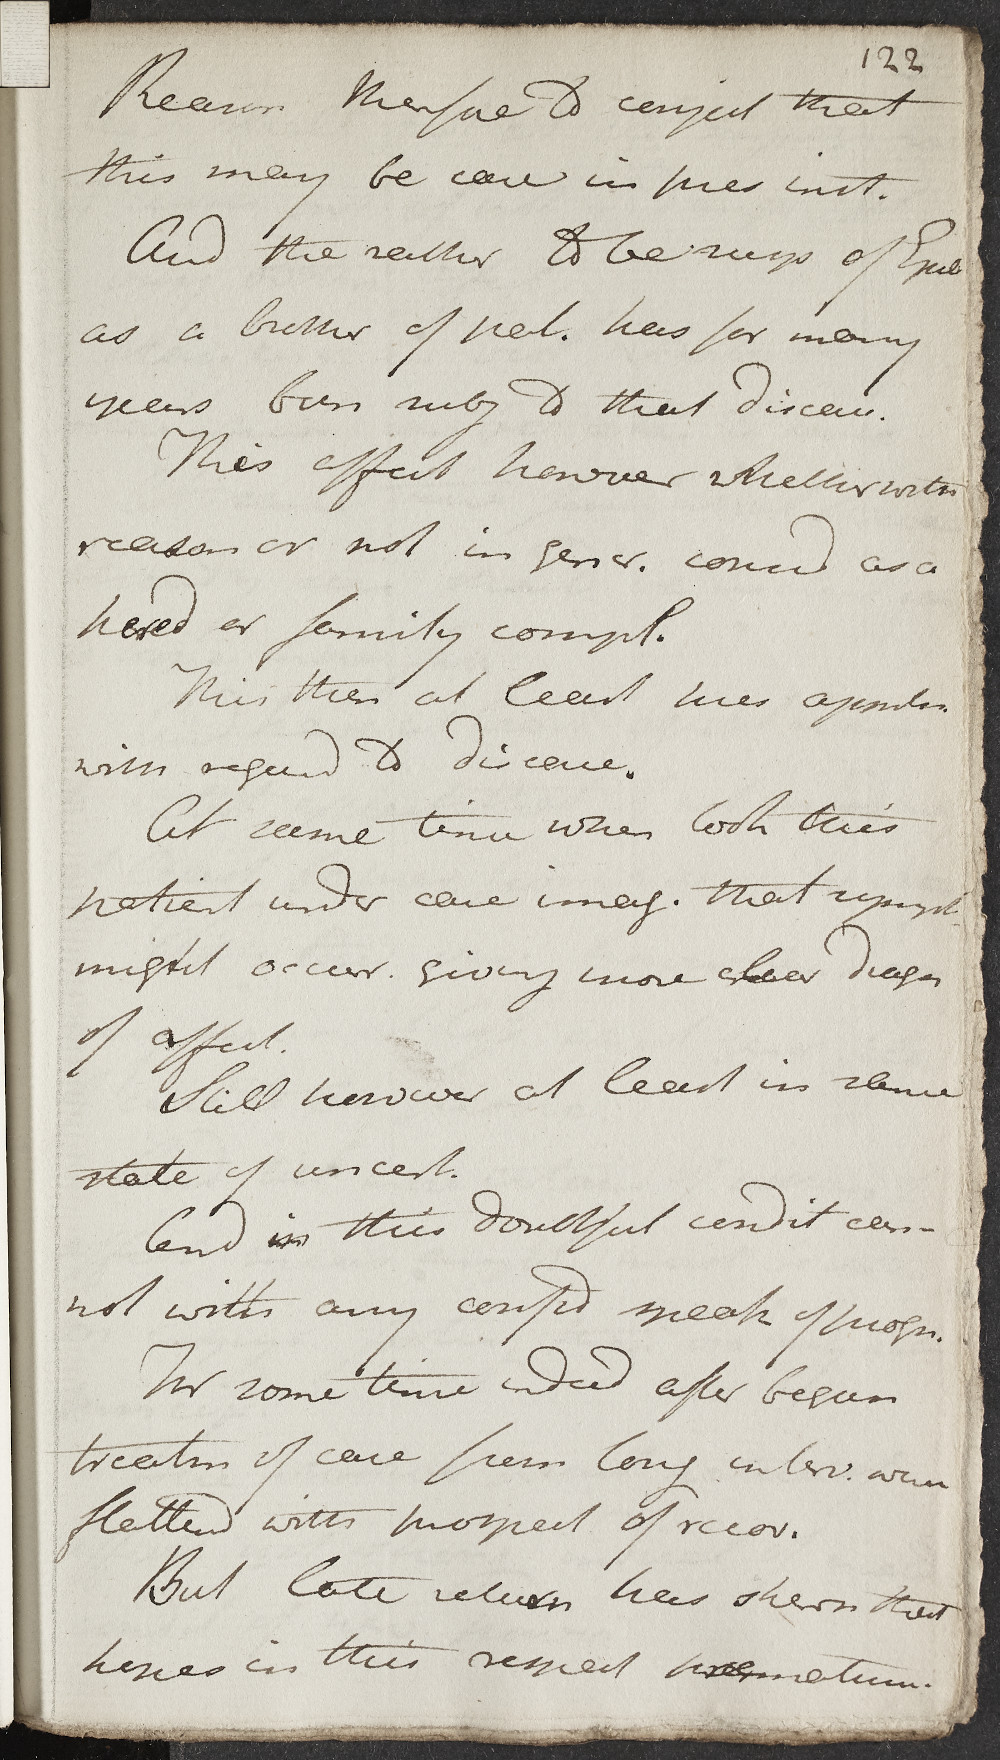 122
Reason therefore to conject that
this may be case in pres inst.
And the rather to be susp of Epil
as a brother of pat. has for many
years been subj to that disease.
This affect however whether with
reason or not in gener. consid as a
hered or family compl.
This then at least pres appreh.
with regard to disease.
At same time when took this
patient under care imag. that sympt
might occur. giving more clear diagn
of affect.
Still however at least in same
state of uncert.
And in this doubtful condit can-
not with any confid speak of progn.
For some time indeed after begun
treatm of case from long interv. were
flatterd with prospect of recov.
But late return has shewn that
hopes in this respect premature.